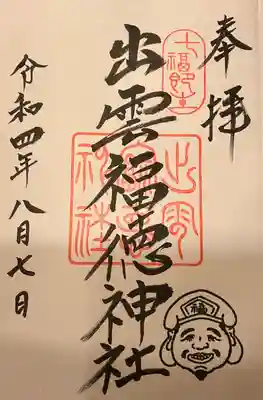 奉拝
七福即生
出雲福徳神社
出雲
福徳
神社
福
令和四年八月七日